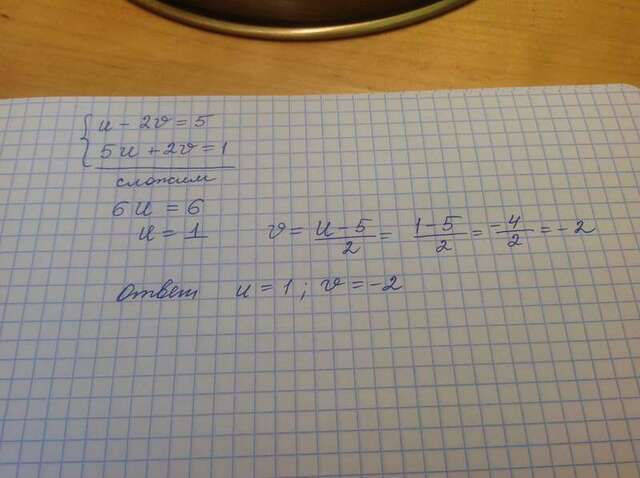 u - 2v = 5
5u + 2v = 1
сложим
6u = 6
u = 1 v = (u-5)/2 = (1-5)/2 = -4/2 = -2
Ответ u = 1; v = -2